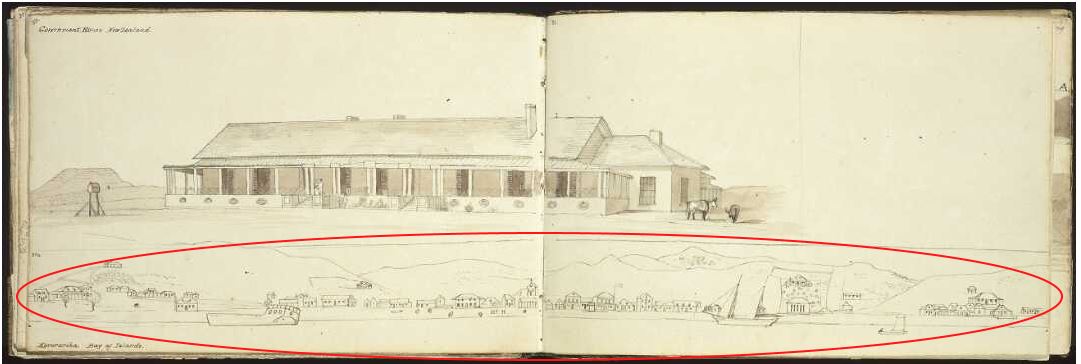 Government House New Zealand.
Kororarika. Bay of Islands.